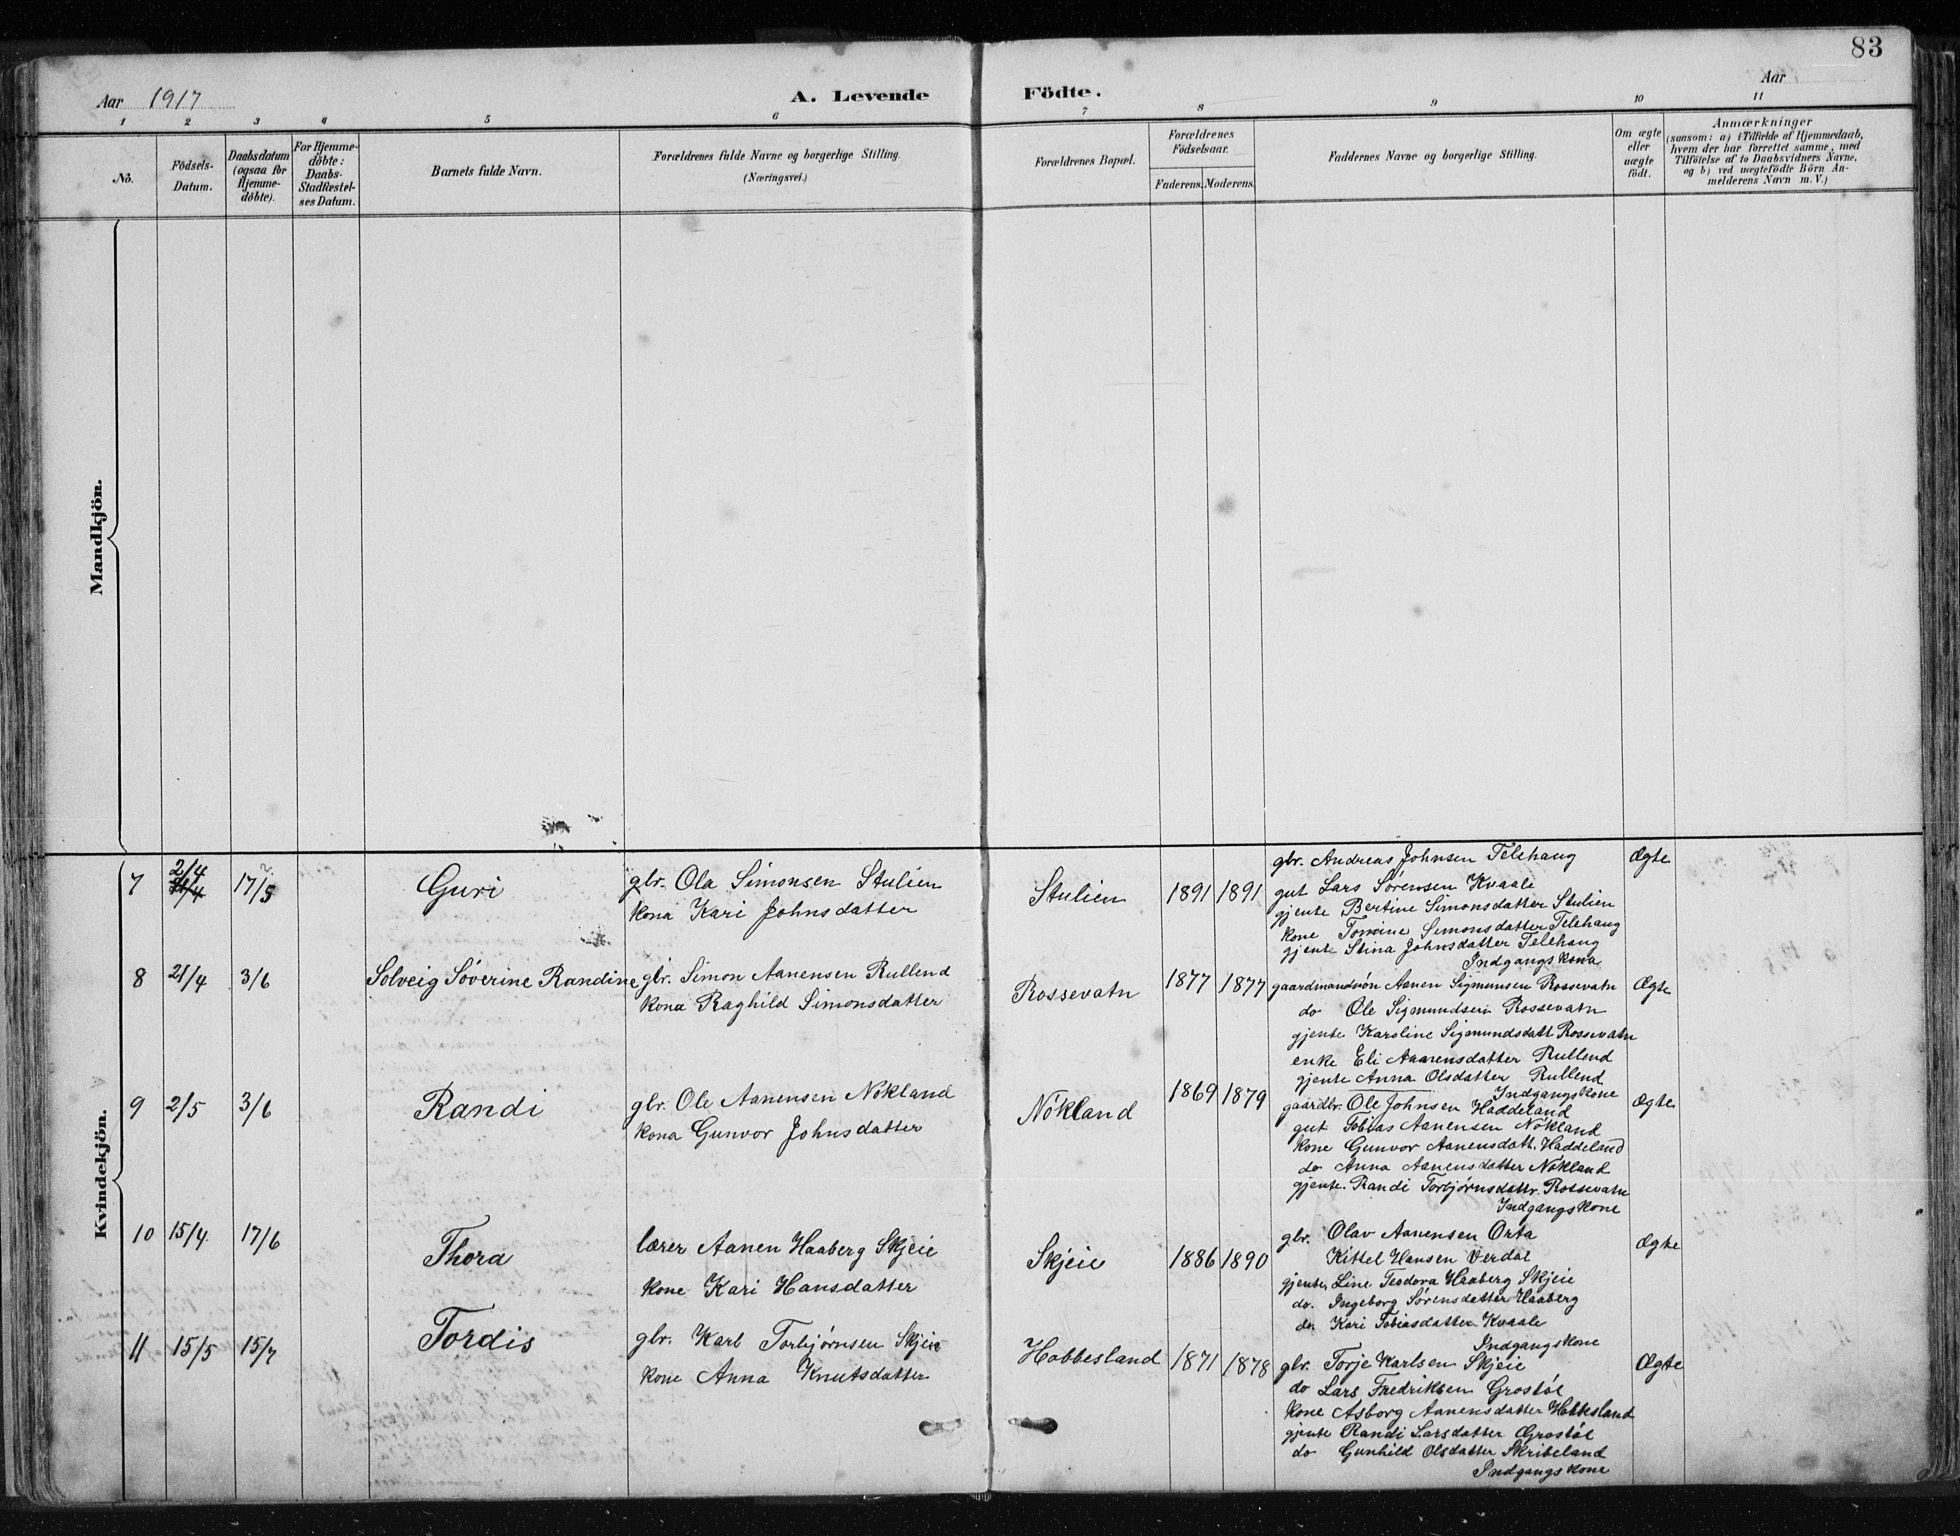 83
Aar 1917
A. Levende Födte.
Aar
1 2 3 4 5 6 7 8 9 10 11
No.
Födsels-
Datum.
Daabsdatum
(ogsaa for
Hjemme-
döbte).
For Hjemme-
döbte:
Daabs-
Stadfæstel-
ses Datum.
Barnets fulde Navn.
Forældrenes fulde Navne og borgerlige Stilling.
(Næringsvei.)
Forældrenes Bopæl.
Forældrenes
Födselsaar.
Faderens. Moderens.
Faddernes Navne og borgerlige Stilling.
Om ægte
eller
uægte
födt.
Anmærkninger
(saasom: a) i Tilfælde af Hjemmedaab,
hvem der har forrettet samme, med
Tilföielse af to Daabsvidners Navne,
og b) ved uægtefödte Börn An-
melderens Navn m. V.)
Mandkjön.
Kvindekjön.
7 2/4 17/5 Guri
glr. Ola Simonsen Stulien
kona Kari Johnsdatter
Stulien 1891 1891
gbr. Andreas Johnsen Telehaug
gut Lars Sørensen Kvaale
gjente Bertine Simonsdatter Stulien
kone Tomine Simonsdatter Telehaug
gjente Stina Johnsdatter Telehaug
Indgangskona
Ægte
8 21/4 3/6 Solveig Søverine Randine
gbr. Simon Aanensen Rullend
kona Raghild Simonsdatter
Rossevatn 1877 1877
gaardmandsøn Aanen Sigmunsen Rossevatn
do Ole Sigmundsen Rossevatn
gjente Karoline Sigmundsdatt Rossevatn
enke Eli Aanensdatter Rullend
gjente Anna Olsdatter Rullend
Indgangskone
Ægte
9 2/5 3/6 Randi
gbr. Ole Aanensen Nökland
kona Gunvor Johnsdatter
Nökland 1869 1879
gaardbr. Ole Johnsen Haddeland
gut Tobias Aanensen Nökland
kone Gunvor Aanensdatt. Haddeland
do Anna Aanensdatter Nökland
gjente. Randi Torbjørnsdattr. Rossevatn
Indgangskone
Ægte
10 15/4 17/6 Thora
lærer Aanen Haaberg Skjeie
kone Kari Hansdatter
Skjeie 1886 1890
gbr. Olav Aanensen Orta
Kittel Hansen Verdal
gjente, Line Teodora Haaberg Skjeie
do. Ingeborg Sørensdatter Haaberg
do. Kari Tobiasdatter Kvaale
Indgangskone
Ægte
11 15/5 15/7 Tordis
gbr. Karl Torbjørnsen Skjeie
kone Anna Knutsdatter
Hobbesland 1871 1878
glr. Torje Karlsen Skjeie
do Lars Fredriksen Grostøl
kone Asborg Aanensdatter Hobbesland
gjente Randi Larsdatter Grostøl
do Gunhild Olsdatter Skribeland
Indgangskone
Ægte